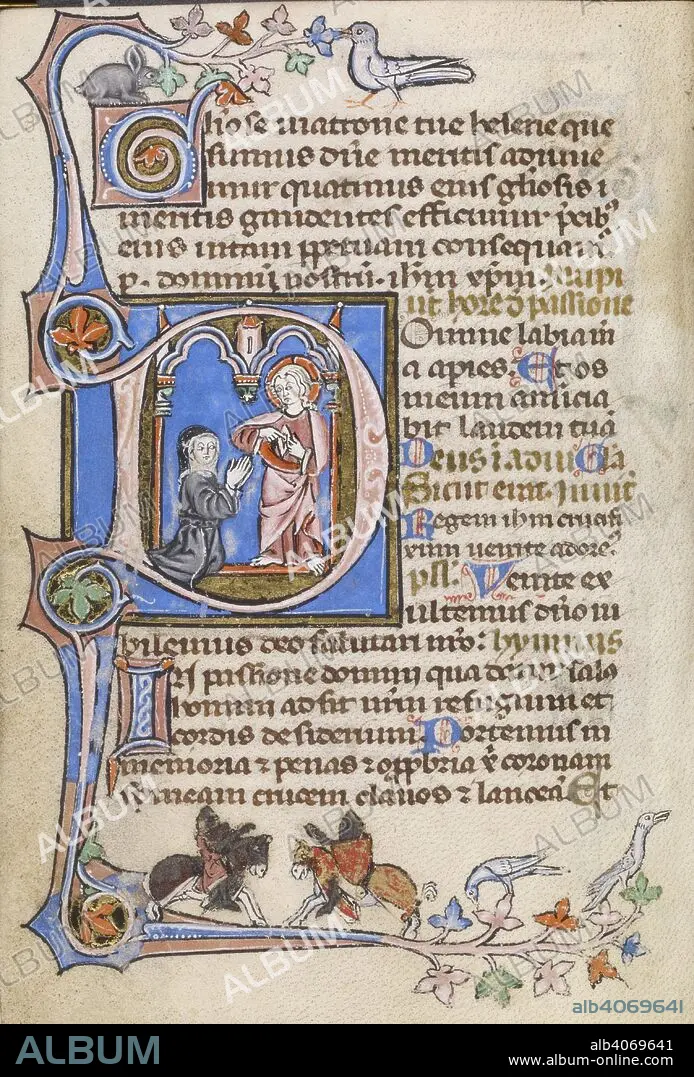 liose matrone tue helene que
sumus dne meritis adiuue
mur quatinus eius gliosis
meritis gaudentes efficimur
eius vitam ppetuam consequam
p. dominu nostru. ihm xpm. Incipi
ut hore d passione
Domine labia m
a apies. Et os
meum anucia
bit laudem tua
Deus i adiu Gla
Sicut erat. Inuit
Regem ihm crucifi
xum uenite adore
ps. Venite ex
ultemus dno iu
bilemus deo salutari nro: hymnus
passione domini qua datur salu
adsit nrm refugium et
cordis desiderium. Portemus in
memoria z penas z opprobria coronam
spineam crucem clauos z lancea. Et
ALBUM
alb4069641
ALBUM
alb4069641
www.album-online.com